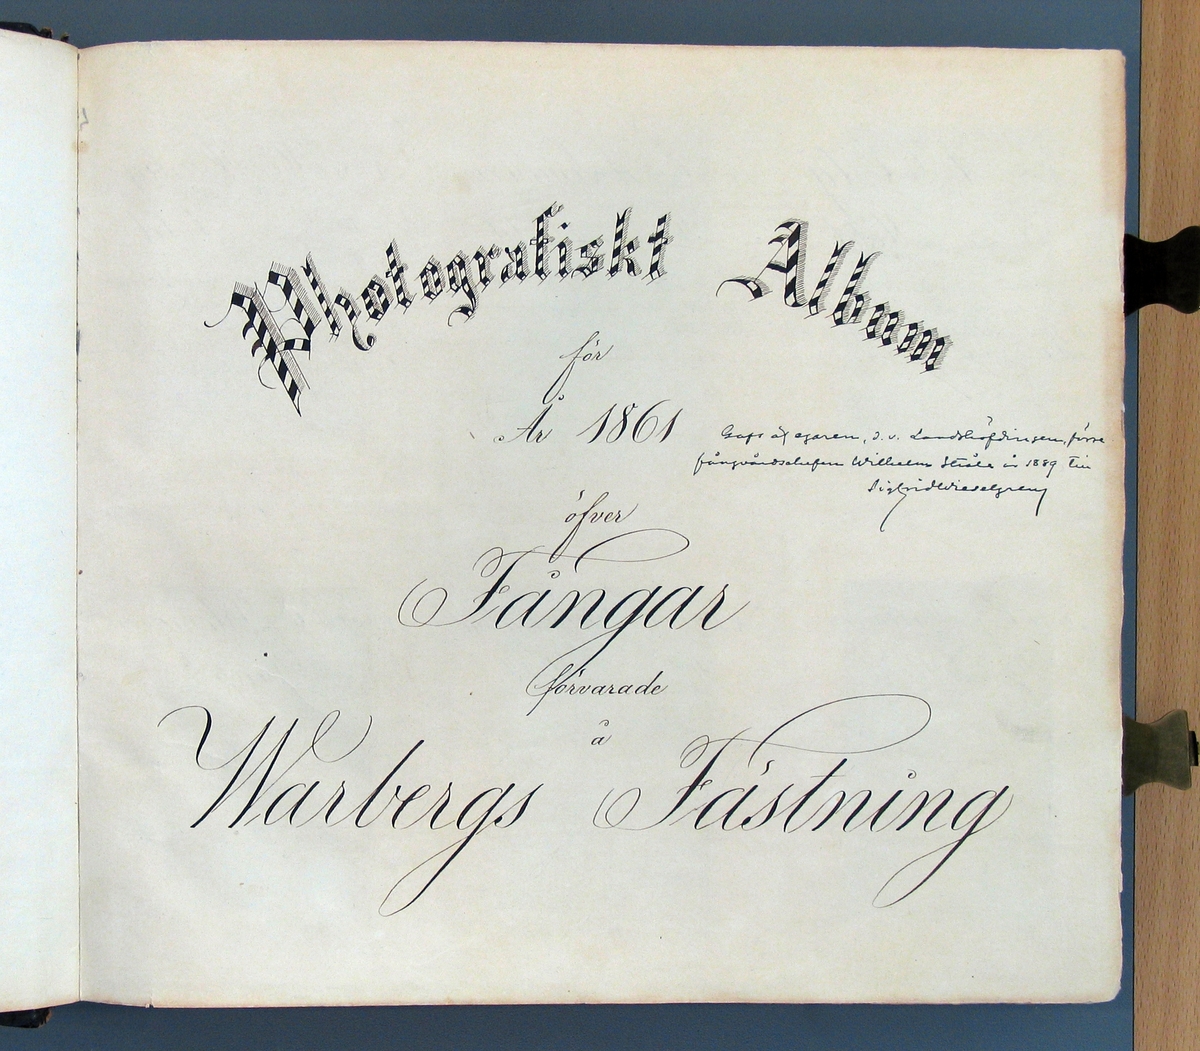 Photografiskt Album
för
År 1861
Gafs af egaren, d. v. Landshöfdingen, förre
fångvårdschefen Wilhelm Stråle år 1889 till
Sigfrid Wieselgren
öfver
Fångar
förvarade
å
Warbergs Fästning